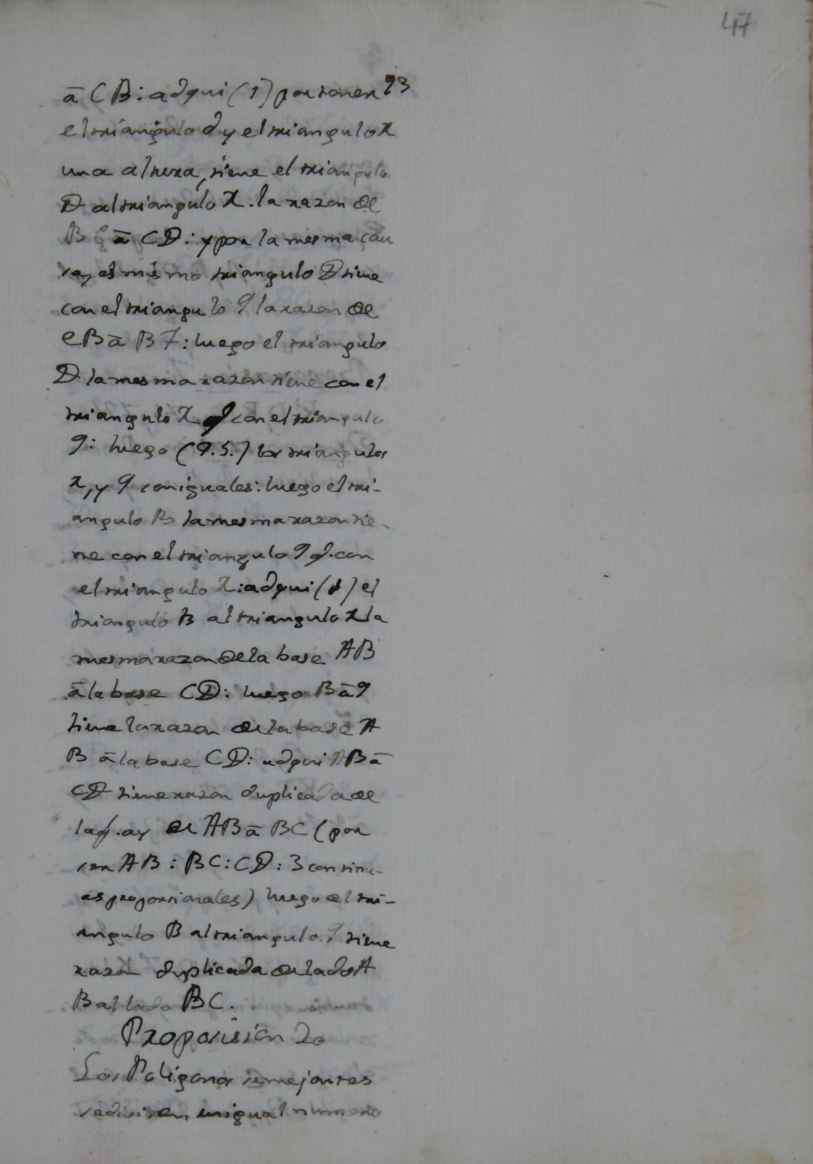 47
93
à CB: adqui (1) por tener
el triangulo d y el triangulo X
una altura, tiene el triangulo
D al triangulo X. la razon de
BC à CD: y por la mesma cau
sa, el mismo triangulo D tiene
con el triangulo 9 la razon de
eB à B7: luego el triangulo
D la mesma razon tiene con el
triangulo X q con el triangulo
9: luego (9.5.) los triangulos
X, y 9 son iguales: luego el tri-
angulo B la mesma razon tie-
ne con el triangulo 9 q. con
el triangulo X: adqui (1) el
triangulo B al triangulo X la
mesma razon de la base AB
à la base CD: luego B à 9
tiene la razon de la base A
B à la base CD: adqui AB à
CD tiene razon duplicada de
la q. ay de AB à BC (por
ser AB: BC: CD: 3 continu-
es proporsionales) luego el tri-
angulo B al triangulo 9 tiene
razon duplicada de lado A
B al lado BC.
Proposision 20
Los Poligonos semejantes
se dividen en igual numero